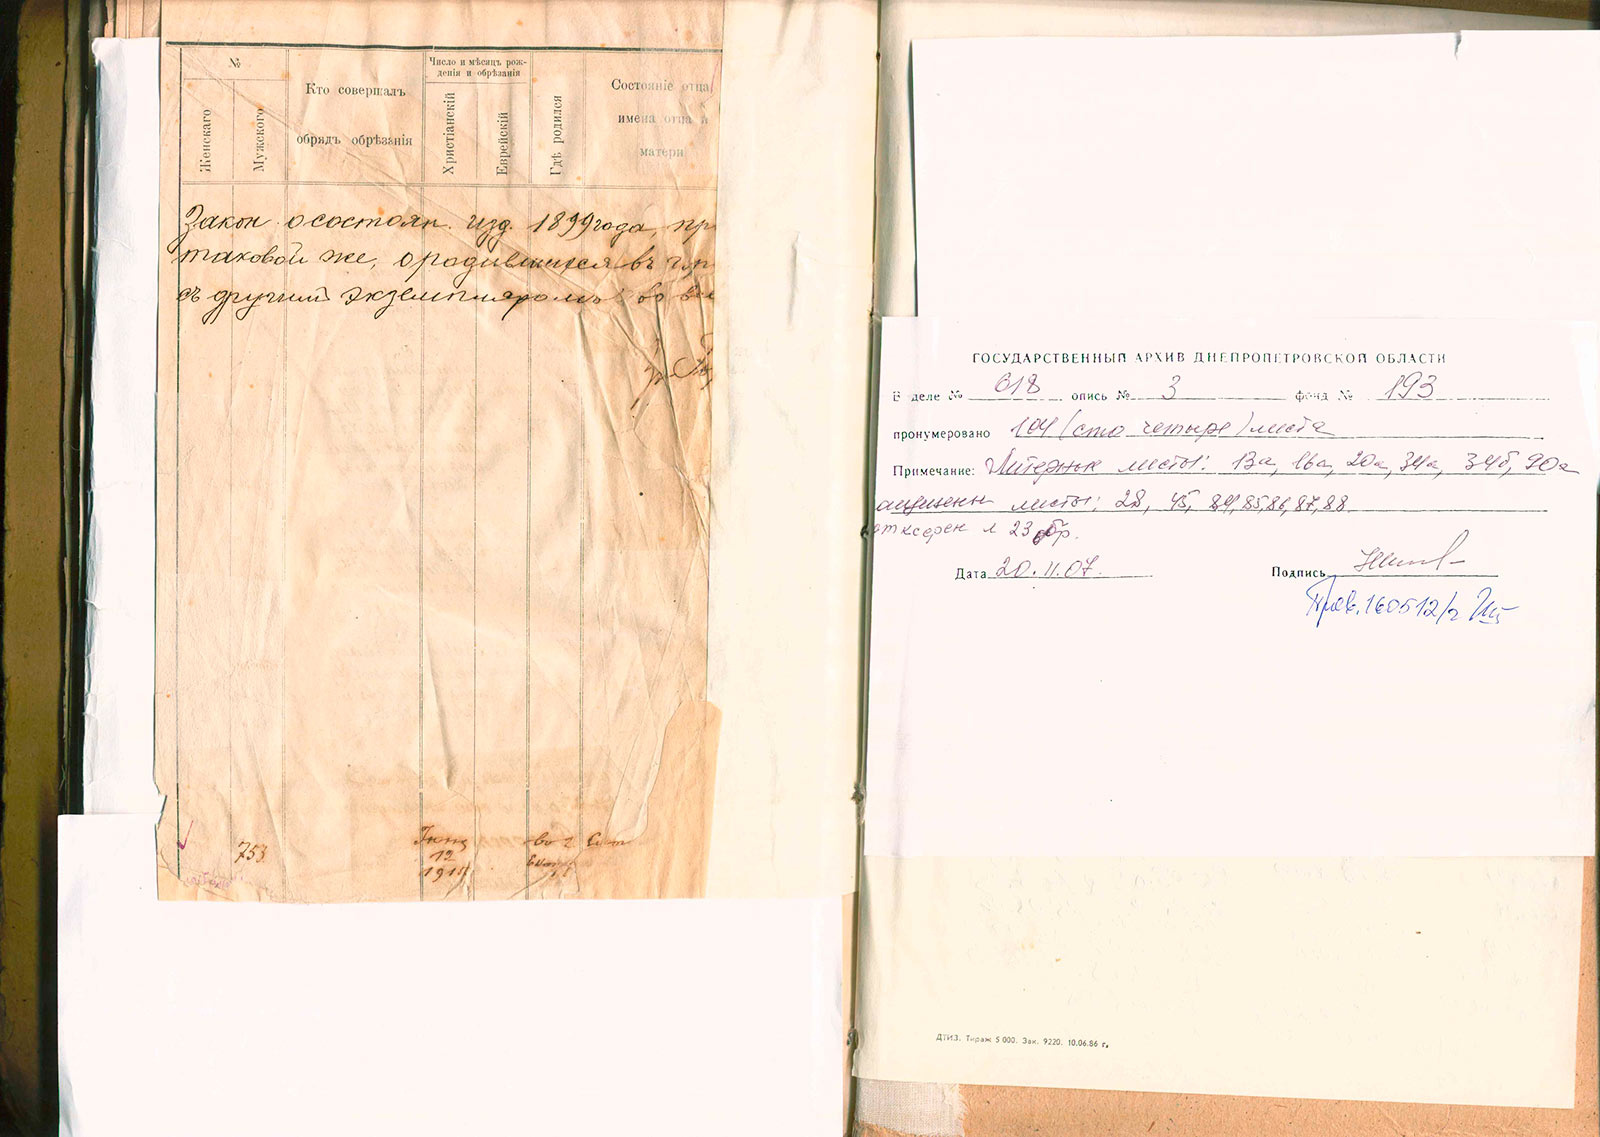 №
Женскаго
Мужского
Кто совершалъ
обрядъ обрѣзанія
Число и мѣсяцъ рож-
денія и обрѣзанія
Христіанскій
Еврейскій
Гдѣ родился
Состояніе отца,
имена отца и
матери
Закон о состоян. изд. 1899 года, пр
таковой же, о родившихся въ г.
съ другимъ экземпляромъ во
753
12
ГОСУДАРСТВЕННЫЙ АРХИВ ДНЕПРОПЕТРОВСКОЙ ОБЛАСТИ
В деле № 618 опись № 3 фонд № 193
пронумеровано 104 (сто четыре) листа
Примечание: Литерные листы: 13а, 16а, 20а, 34а, 34б, 90а
листы: 28, 45, 84, 85, 86, 87, 88
л 23 обр.
Дата 20.11.07. Подпись
ДТИЗ. Тираж 5 000. Зак. 9220. 10.06.86 г.